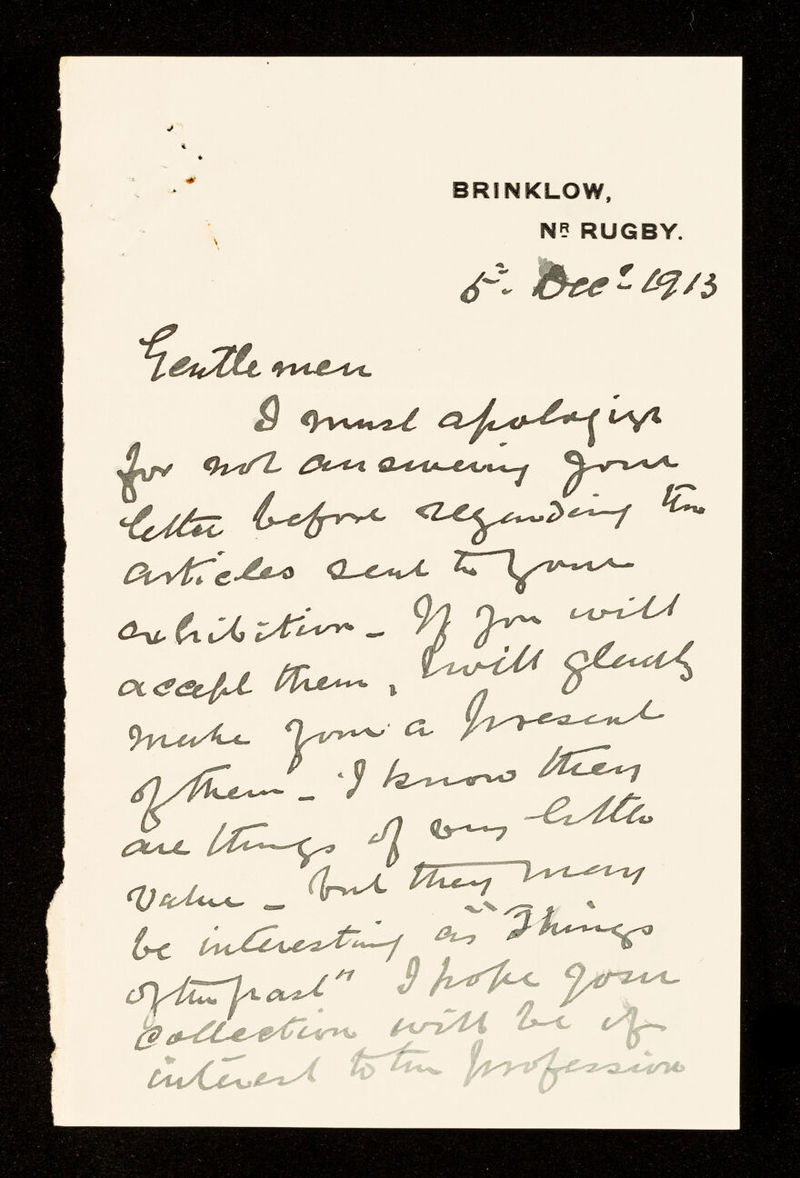 BRINKLOW,
NR RUGBY.
5th. Decr 1913
Gentlemen
I must apologize
for not answering your
letter before regarding the
articles sent to your
exhibition - If you will
accept them, I will gladly
make you a present
of them - I know they
are things of very little
value - but they may
be interesting as "Things
of the past" I hope your
collection will be of
interest to the profession